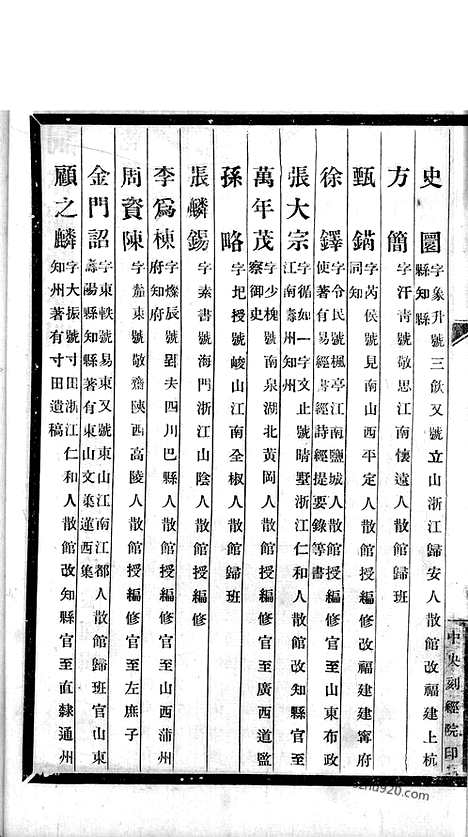 史圜 字象升號三飲又號立山浙江歸安人散館改福建上杭
縣知縣
方簡 字汗靑號敬思江南懷遠人散館歸班
甄錡 字芮侯號見南山西平定人散館授編修改福建建寧府
同知
徐鐸 字令民號楓亭江南鹽城人散館授編修官至山東布政
使著有易經書經詩經提要錄等書
張大宗 字循如一字文止號晴墅浙江仁和人散館改知縣官至
江南壽州知州
萬年茂 字少槐號南泉湖北黃岡人散館授編修官至廣西道監
察御史
孫略 字圯授號峻山江南全椒人散館歸班
張麟錫 字素書號海門浙江山陰人散館授編修
李爲棟 字燦辰號夫四川巴縣人散館授編修官至山西蒲州
府知府
周資陳 字茹東號敬齋陝西高陵人散館授編修官至左庶子
金門詔 字東軼號易東又號東山江南江都人散館歸班官山東
壽陽縣知縣著有東山文集蓮西集
顧之麟 字大振號寸田浙江仁和人散館改知縣官至直隸通州
知州著有寸田遺稿
中央刻經院印